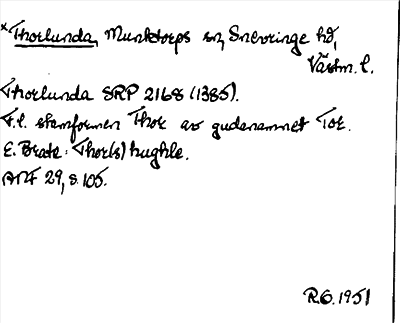 *Thorlunda, Munktorps sn, Snevringe hd,
Västm. l.
Thorlunda SRP 2168 (1385).
F.l. stamformen Thor av gudanamnet Tor.
E. Brate: Thor(s)hughle.
ANF 29, s. 105.
R.O. 1951